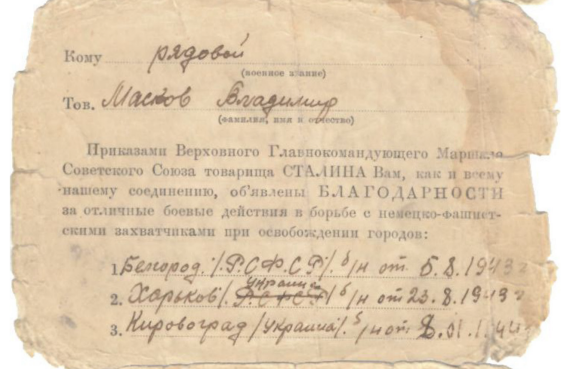 Кому рядовой
(военное звание)
Тов. Маслов Владимир
(фамилия, имя и отчество)
Приказами Верховного Главнокомандующего Маршала
Советского Союза товарища СТАЛИНА Вам, как и всему
нашему соединению, об'явлены БЛАГОДАРНОСТИ
за отличные боевые действия в борьбе с немецко-фашист-
скими захватчиками при освобождении городов:
1. Белгород /Р.С.Ф.С.Р/. б/н от 5.8.1943 г
Украина
2. Харьков /Р.С.Ф.С.Р/ б/н от 23.8.1943 г
3. Кировоград /Украина/. б/н от 8.01.1944